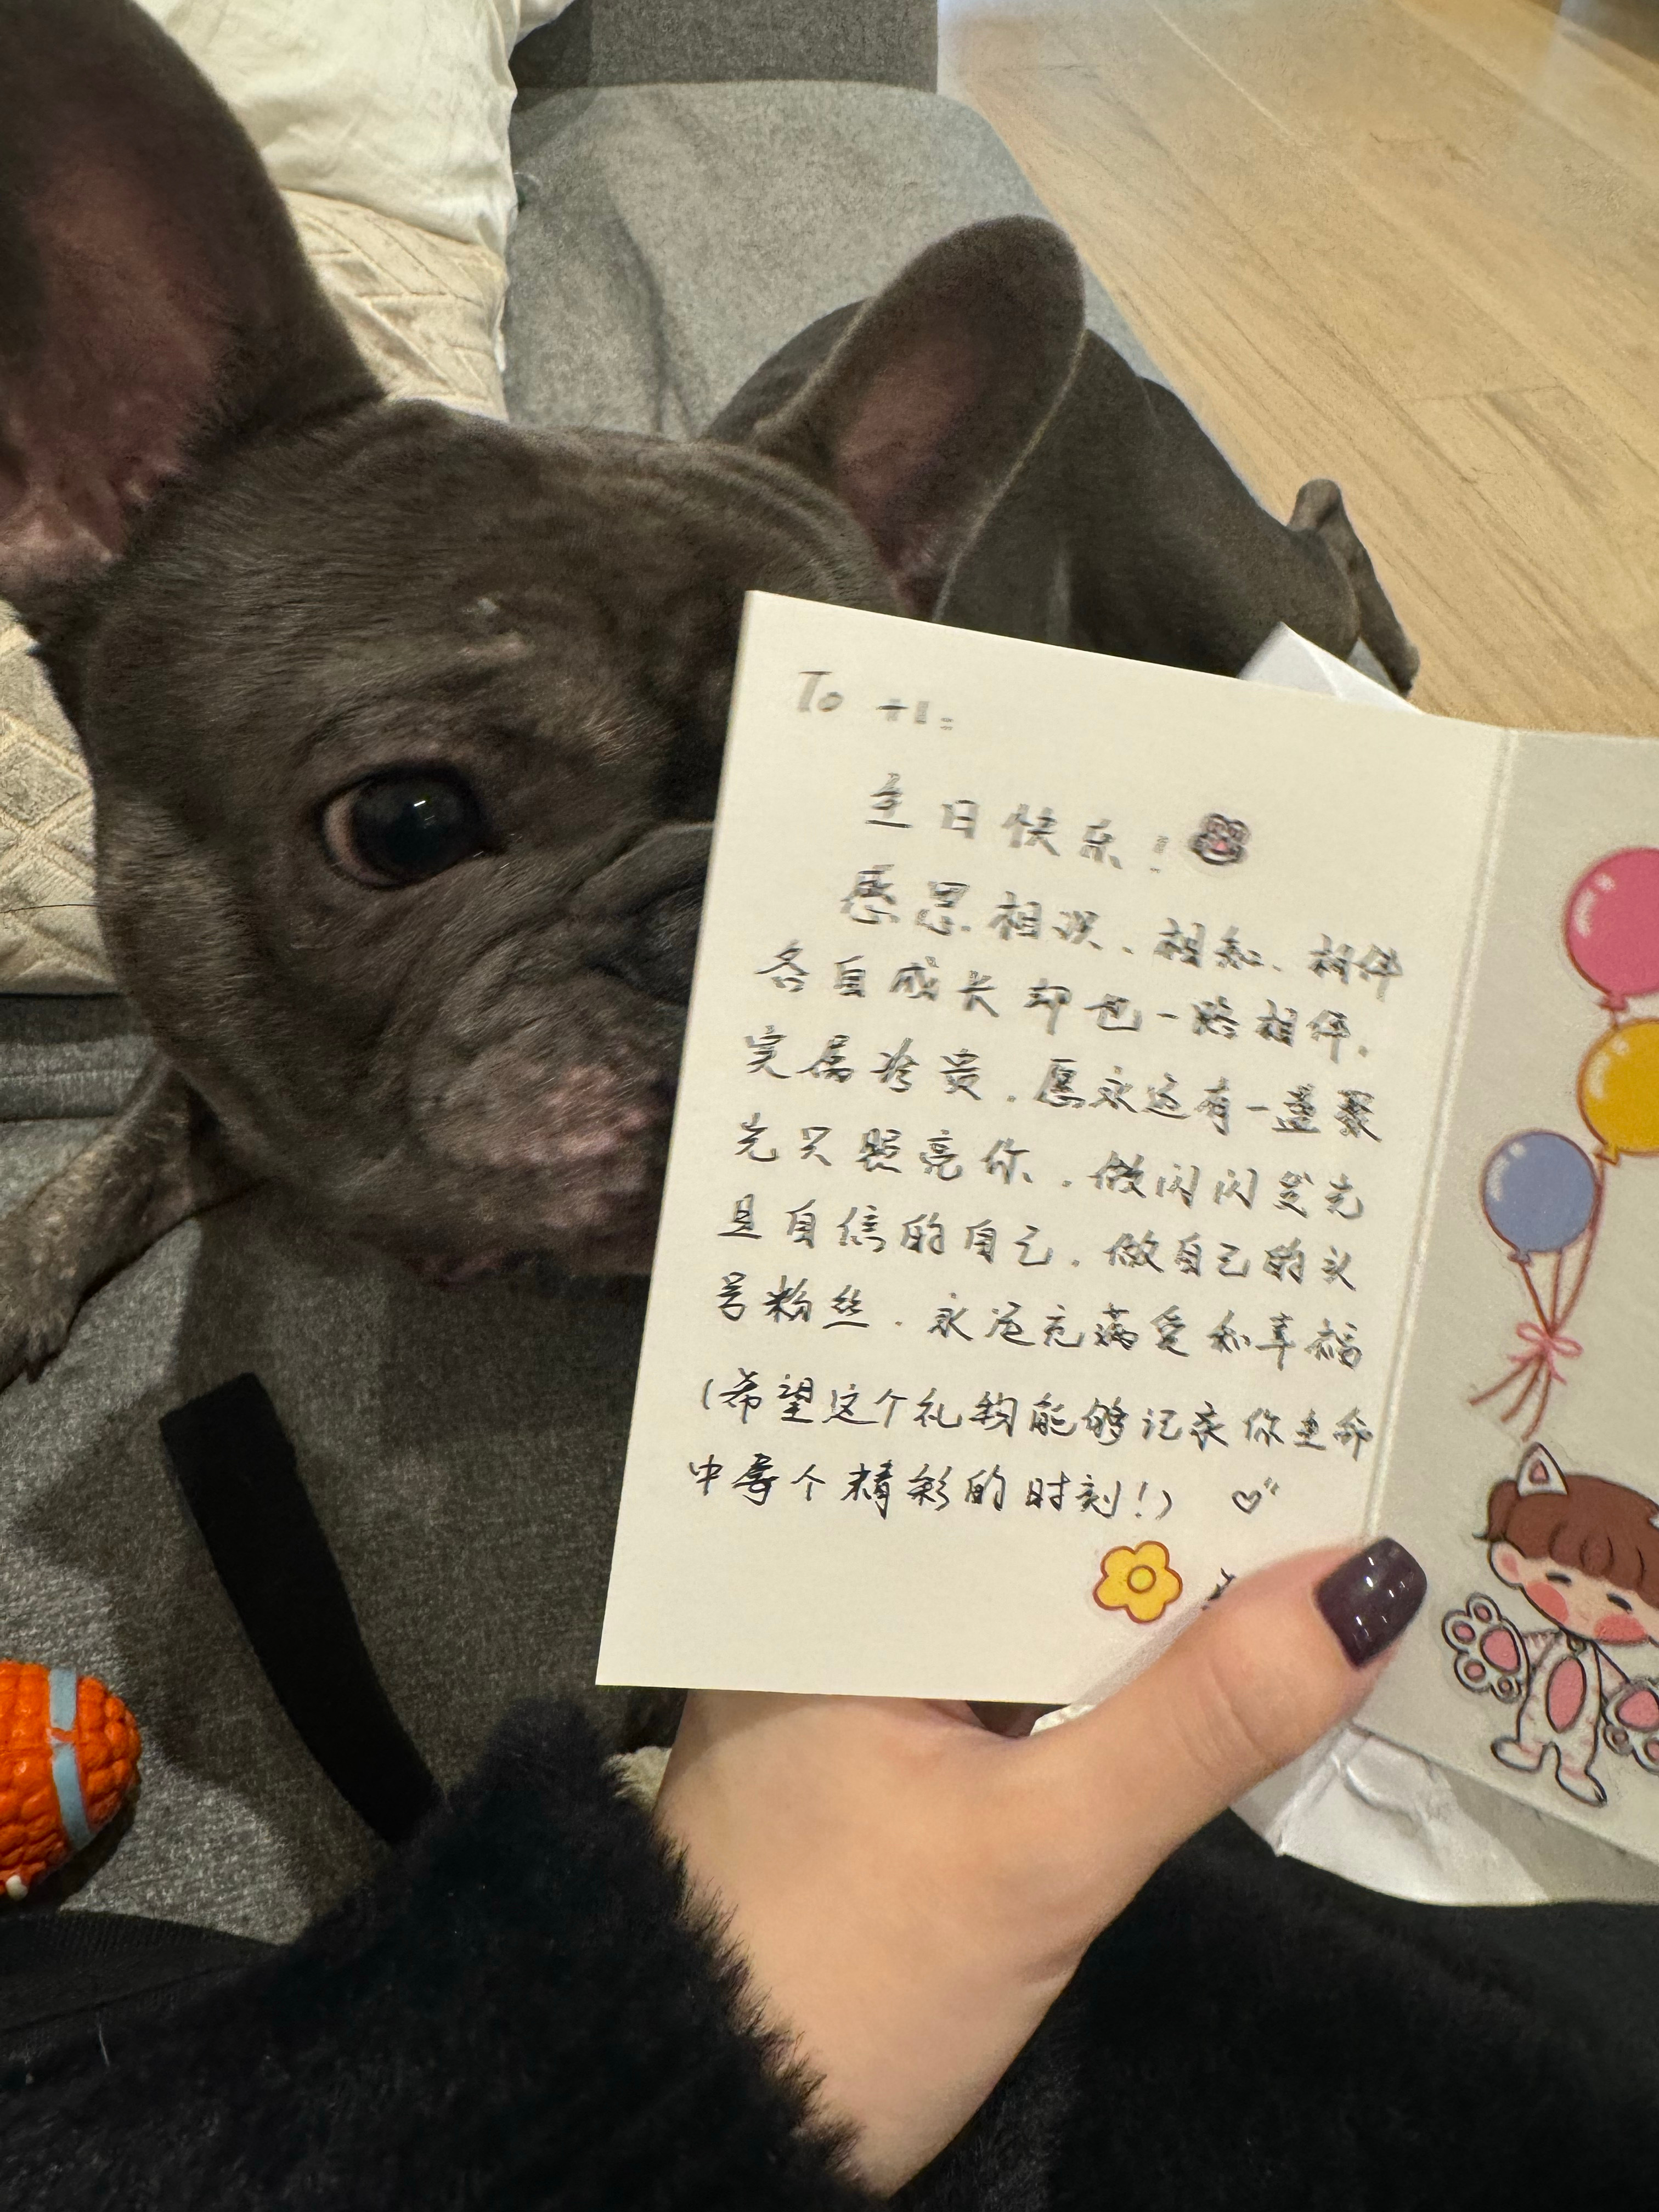 To +1:
生日快乐！
感恩相识、相知、相伴
各自成长却也一路相伴.
实属珍贵.愿永远有一盏聚
光只照亮你.做闪闪发光
且自信的自己.做自己的头
号粉丝.永远充满爱和幸福
(希望这个礼物能够记录你生命
中每个精彩的时刻!)